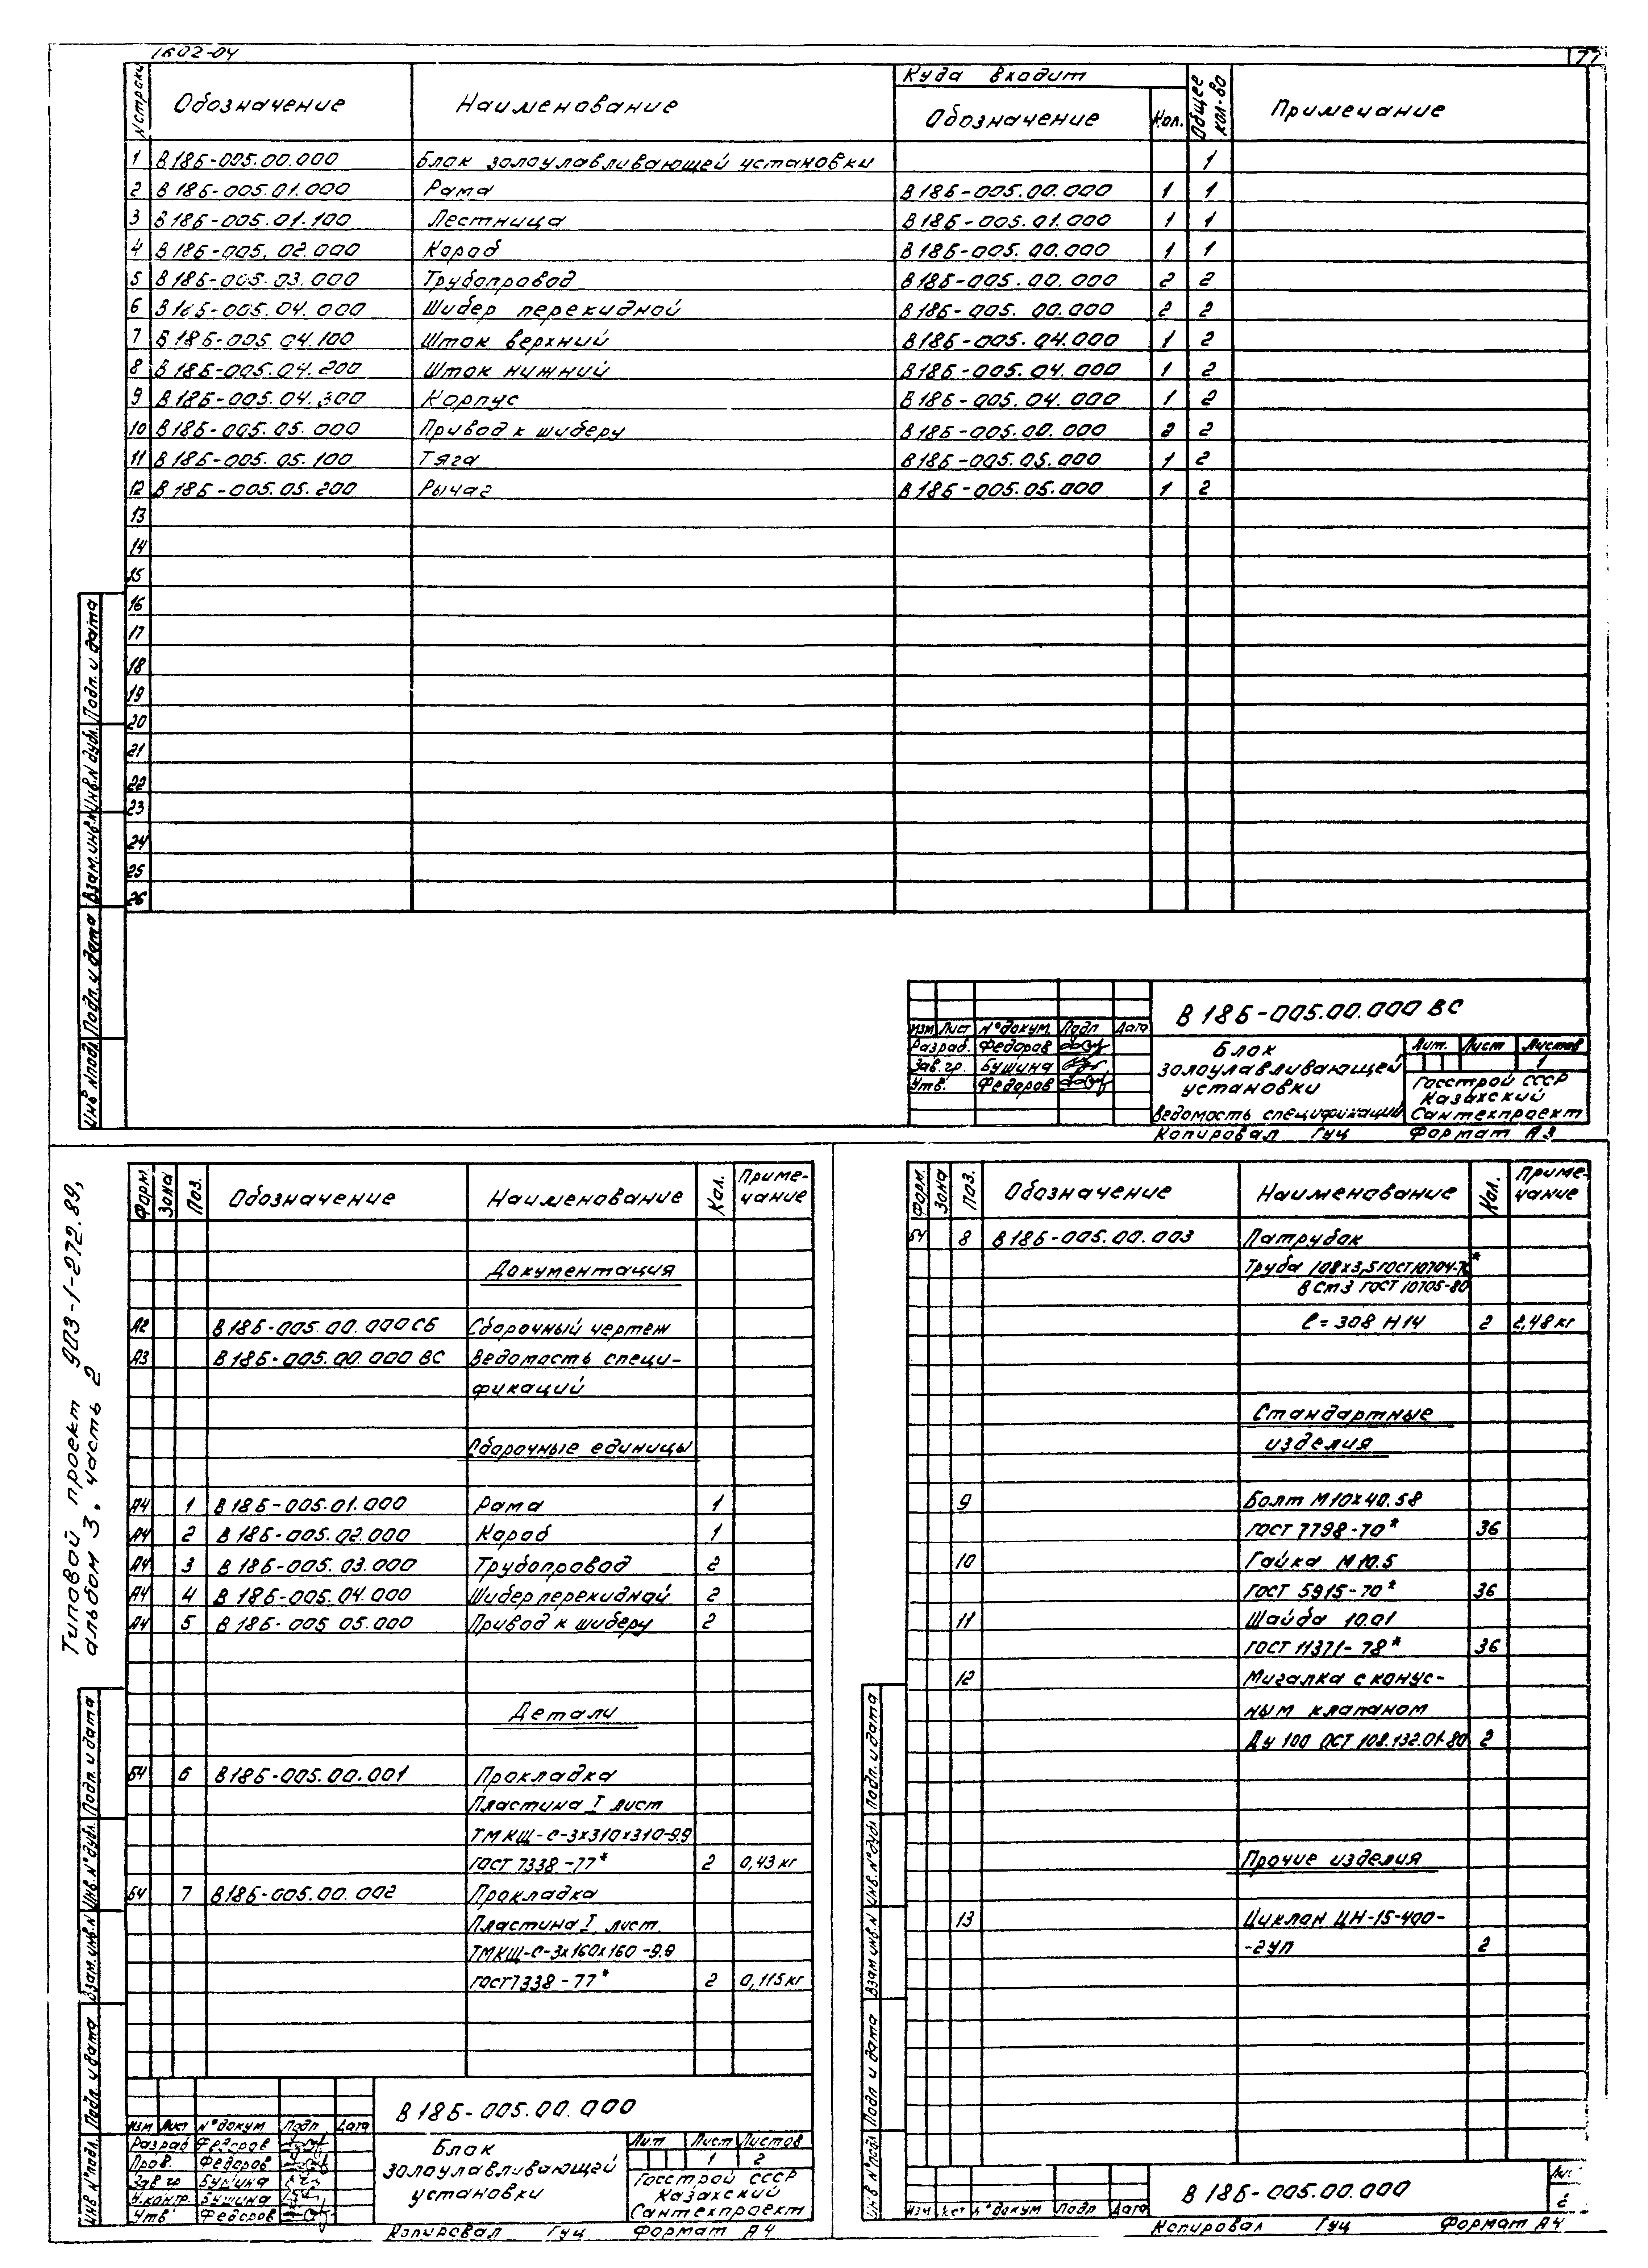 1602-04
77
№ строки Обозначение Наименование Куда входит Обозначение Кол. Общее кол-во Примечание
1 В 18Б-005.00.000 Блок золоулавливающей установки 1
2 В 18Б-005.01.000 Рама В 18Б-005.00.000 1 1
3 В 18Б-005.01.100 Лестница В 18Б-005.01.000 1 1
4 В 18Б-005.02.000 Короб В 18Б-005.00.000 1 1
5 В 18Б-005.03.000 Трубопровод В 18Б-005.00.000 2 2
6 В 18Б-005.04.000 Шибер перекидной В 18Б-005.00.000 2 2
7 В 18Б-005.04.100 Шток верхний В 18Б-005.04.000 1 2
8 В 18Б-005.04.200 Шток нижний В 18Б-005.04.000 1 2
9 В 18Б-005.04.300 Корпус В 18Б-005.04.000 1 2
10 В 18Б-005.05.000 Привод к шиберу В 18Б-005.00.000 2 2
11 В 18Б-005.05.100 Тяга В 18Б-005.05.000 1 2
12 В 18Б-005.05.200 Рычаг В 18Б-005.05.000 1 2
13
14
15
16
17
18
19
20
21
22
23
24
25
26
Инв № подл. Подп. и дата Взам.инв.№ Инв.№ дубл. Подп. и дата
В 18Б-005.00.000 ВС
Изм Лист № докум. Подп Дата
Разраб. Федоров
Зав.гр. Бушина
Утв. Федоров
Блок
золоулавливающей
установки
Ведомость спецификаций
Лит. Лист Листов
1
Госстрой СССР
Казахский
Сантехпроект
Копировал Гуц Формат А3
Типовой проект 903-1-272.89,
альбом 3, часть 2
Форм. Зона Поз. Обозначение Наименование Кол. Приме-
чание
Документация
А2 В 18Б-005.00.000 СБ Сборочный чертеж
А3 В 18Б-005.00.000 ВС Ведомость специ-
фикаций
Сборочные единицы
А4 1 В 18Б-005.01.000 Рама 1
А4 2 В 18Б-005.02.000 Короб 1
А4 3 В 18Б-005.03.000 Трубопровод 2
А4 4 В 18Б-005.04.000 Шибер перекидной 2
А4 5 В 18Б-005 05.000 Привод к шиберу 2
Детали
БЧ 6 В 18Б-005.00.001 Прокладка
Пластина I лист
ТМКЩ-С-3х310х310-9.9
ГОСТ 7338-77* 2 0,43 кг
БЧ 7 В 18Б-005.00.002 Прокладка
Пластина I, лист
ТМКЩ-С-3х160х160-9.9
ГОСТ 7338-77* 2 0,115 кг
Инв № подл. Подп. и дата Взам.инв.№ Инв.№ дубл. Подп. и дата
В 18Б-005.00.000
Изм Лист № докум Подп Дата
Разраб Федоров
Пров. Федоров
Зав гр Бушина
Н.контр. Бушина
Утв Федоров
Блок
золоулавливающей
установки
Лит Лист Листов
1 2
Госстрой СССР
Казахский
Сантехпроект
Копировал Гуц Формат А4
Форм. Зона Поз. Обозначение Наименование Кол. Приме-
чание
БЧ 8 В 18Б-005.00.003 Патрубок
Труба 108х3,5 ГОСТ 10704-76*
В Ст3 ГОСТ 10705-80
ℓ=308 Н14 2 2,48 кг
Стандартные
изделия
9 Болт М10х40.58
ГОСТ 7798-70* 36
10 Гайка М10.5
ГОСТ 5915-70* 36
11 Шайба 10.01
ГОСТ 11371-78* 36
12 Мигалка с конус-
ным клапаном
Ду 100 ОСТ 108.132.01-80 2
Прочие изделия
13 Циклон ЦН-15-400-
-2УП 2
Инв № подл Подп и дата Взам инв.№ Инв.№ дубл Подп. и дата
Изм Лист № докум Подп Дата
В 18Б-005.00.000
Лис
2
Копировал Гуц Формат А4